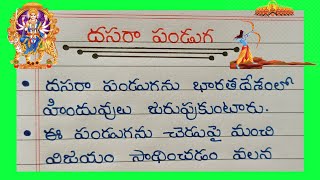 దసరా పండుగ
దసరా పండుగను భారతదేశంలో
హిందువులు జరుపుకుంటారు.
ఈ పండుగను చెడుపై మంచి
విజయం సాధించడం వలన